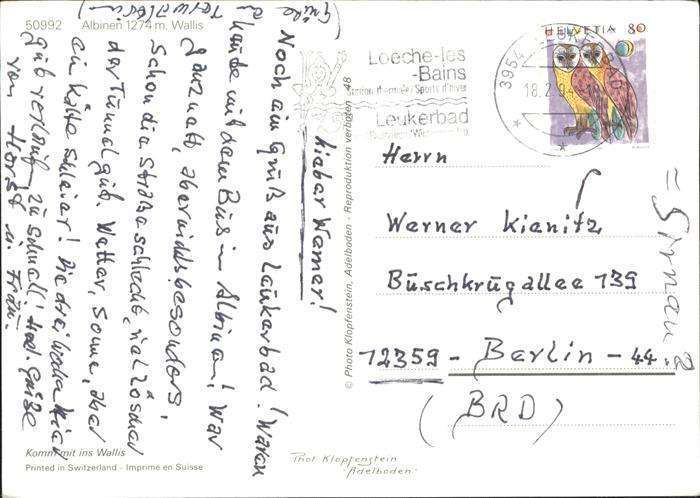 50992 Albinen 1274 m. Wallis
(Grüße an
Lieber Werner!
Noch ein Gruß aus Leukerbad! Waren
heute mit dem Bus in Albinen! War
ganz nett, aber nichts besonders,
schon die Straße schlecht, viel Löscher
der Tunnel gut. Wetter, Sonne, aber
ein Kälte schleier! Die drei Wochen hier
gut verlauf zu schnell! Hrzl. Grüße
von Horst u. Frau.
Komm mit ins Wallis
Printed in Switzerland - Imprimé en Suisse
© Photo Klopfenstein, Adelboden - Reproduktion verboten 48
Phot Klopfenstein
Adelboden
Loèche-les
-Bains
Station thermale/Sports d'hiver
Leukerbad
3954
18.2.94
HELVETIA 80
Herrn
Werner Kienitz
Büschkrügallee 139
12359 - Berlin - 44.
(BRD)